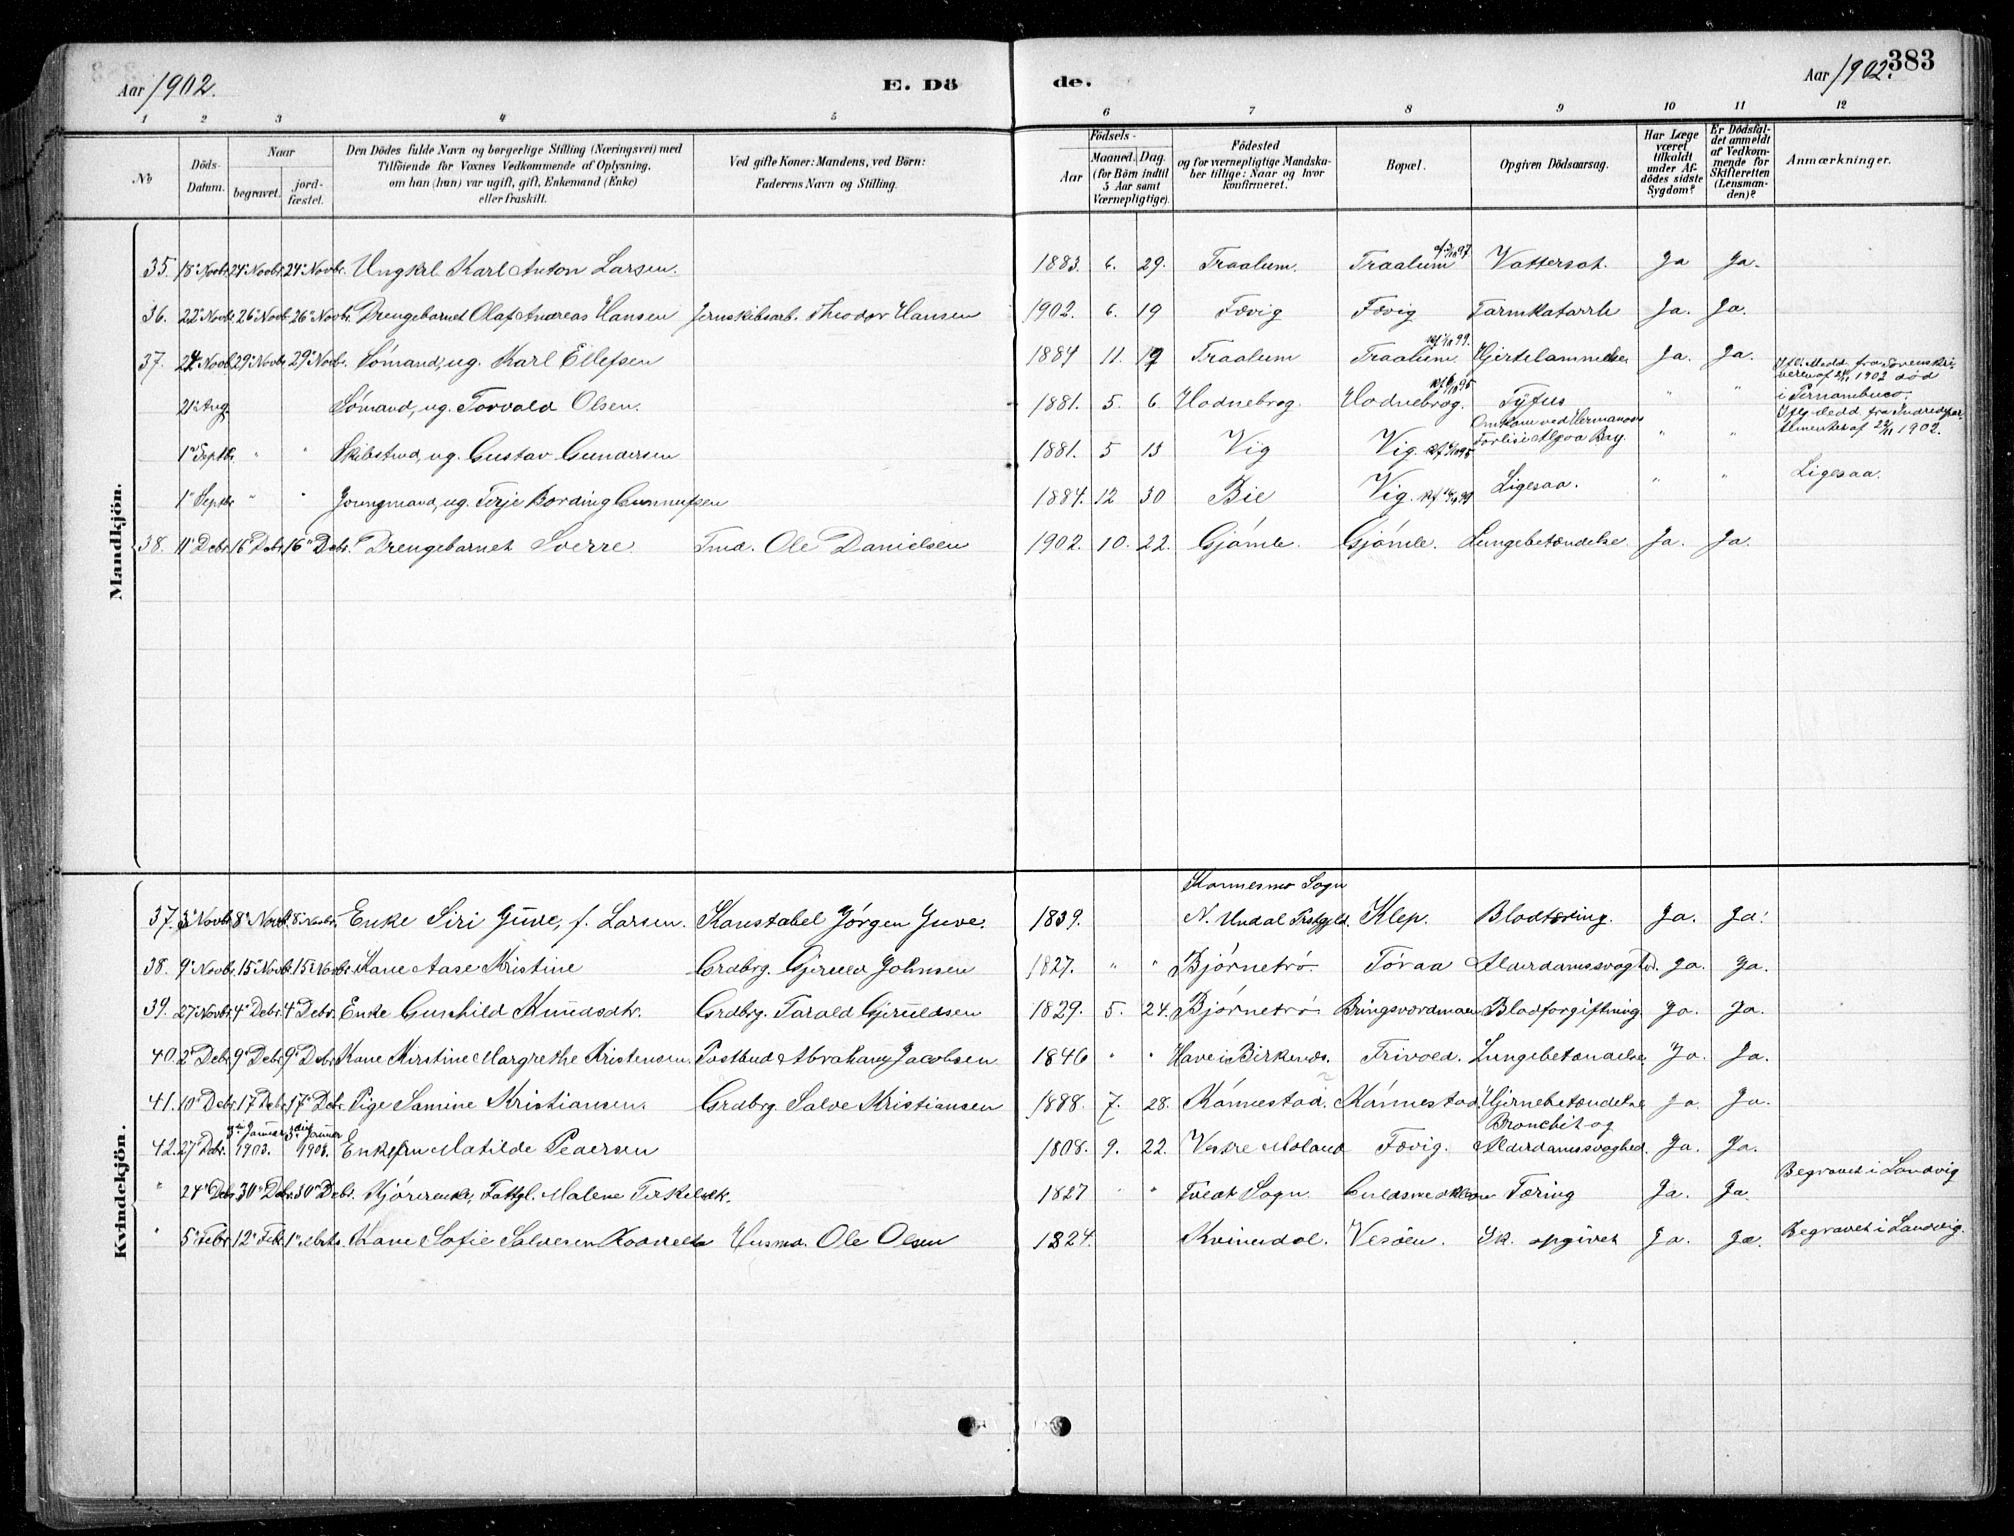 Aar 1902. E. Dö de. Aar 1902. 383
1 2 3 4 5 6 7 8 9 10 11 12
No Döds-Datum. Naar begravet. jord-fæstet. Den Dödes fulde Navn og borgerlige Stilling (Næringsvei) med Tilföiende for Voxnes Vedkommende af Oplysning, om han (hun) var ugift, gift, Enkemand (Enke) eller fraskilt. Ved gifte Koner: Mandens, ved Börn: Faderens Navn og Stilling. Födsels- Aar Maaned. Dag. (for Börn indtil 5 Aar samt Værnepligtige). Födested og for værnepligtige Mandskaber tillige: Naar og hvor konfirmeret. Bopæl. Opgiven Dödsaarsag. Har Læge været tilkaldt under Afdödes sidste Sygdom? Er Dödsfaldet anmeldt af Vedkommende for Skifteretten (Lensmanden)? Anmærkninger.
Mandkjön.
35. 18 Novbr. 24 Novbr. 24 Novbr. Ungkrl Karl Anton Larsen. 1883. 6. 29. Traalum. Traalum Vattersot. Ja Ja.
36. 22 Novbr. 26 Novbr. 26 Novbr. Drengebarnet Olaf Andreas Hansen Jernskibsarb. Theodor Hansen 1902. 6. 19 Fævig Fævig Tarmkatarrh Ja. Ja.
37. 24 Novbr. 29 Novbr. 29 Novbr. Sømand, ug. Karl Ellefsen 1884 11. 19 Traalum Traalum Hjertelammelse Ja. Ja.
21 Aug. Sømand, ug. Torvald Olsen. 1881. 5. 6. Hodnebrog. Hodnebrog. Tyfus " " 1902 død i Pernambuco.
1 Septbr. " " Skibstmd, ug. Gustav Gundersen 1881. 5 13 Vig Vig. Omkom ved Hermanos Forlis i Algoa Bay. " " 1902.
1 Septbr " " Joungmand, ug. Terje Bording Gunnufsen 1884. 12 30 Bie Vig. Ligesaa. " " Ligesaa.
38. 11 Debr. 16 Debr. 16 Debr. Drengebarnet Sverre Tmd. Ole Danielsen 1902. 10. 22. Gjømle. Gjømle. Lungebetændelse Ja. Ja.
Kvindekjön.
37. 3 Novbr. 8 Novbr. 8 Novbr. Enke Siri Juve, f. Larsen. Konstabel Jørgen Juve. 1839. Konnesmo Sogn N. Undal Prstgjld. Klep. Blodtæring. Ja. Ja.
38. 9 Novbr. 15 Novbr. 15 Novbr. Kone Aase Kristine Grdbrg. Gjeruld Johnsen 1827. " " Bjørnetrø. Tøraa Alderdomssvaghed. Ja. Ja.
39. 27 Novbr. 4 Debr. 4 Debr. Enke Gunhild Knudsdtr. Grdbrg. Tarald Gjeruldsen 1829. 5. 24. Bjørnetrø Bringsværdmoen Blodforgiftning. Ja. Ja.
40. 2 Debr. 9 Debr. 9 Debr. Kone Kirstine Margrethe Kristensen Postbud Abraham Jacobsen 1846 " " Have i Birkenæs. Frivold. Lungebetændelse Ja. Ja.
41. 10 Debr. 17 Debr. 17 Debr. Pige Samine Kristiansen. Grdbrg. Salve Kristiansen 1888. 7. 28. Kónnestad. Kónnestad. Hjernebetændelse Ja. Ja.
42. 27 Debr. 3 Januar 1903. 3 Januar 1903. Enkefru Matilde Pedersen 1808. 9. 22. Vestre Moland Fævig. Bronchit og Alderdomssvaghed. Ja. Ja.
" 24 Debr. 30 Debr. 30 Debr. Fattgl. Malene Terkelsdtr. 1827 " " Tveit Sogn. Guldsmedkleven Tæring Ja. Ja. Begravet i Landvig
" 5 Febr. 12 Febr. 1 Marts. Kone Sofie Salvesen Husmd. Ole Olsen 1824. Kvinesdal. Vesøen. Ik. opgivet Ja. Ja. Begravet i Landvig.